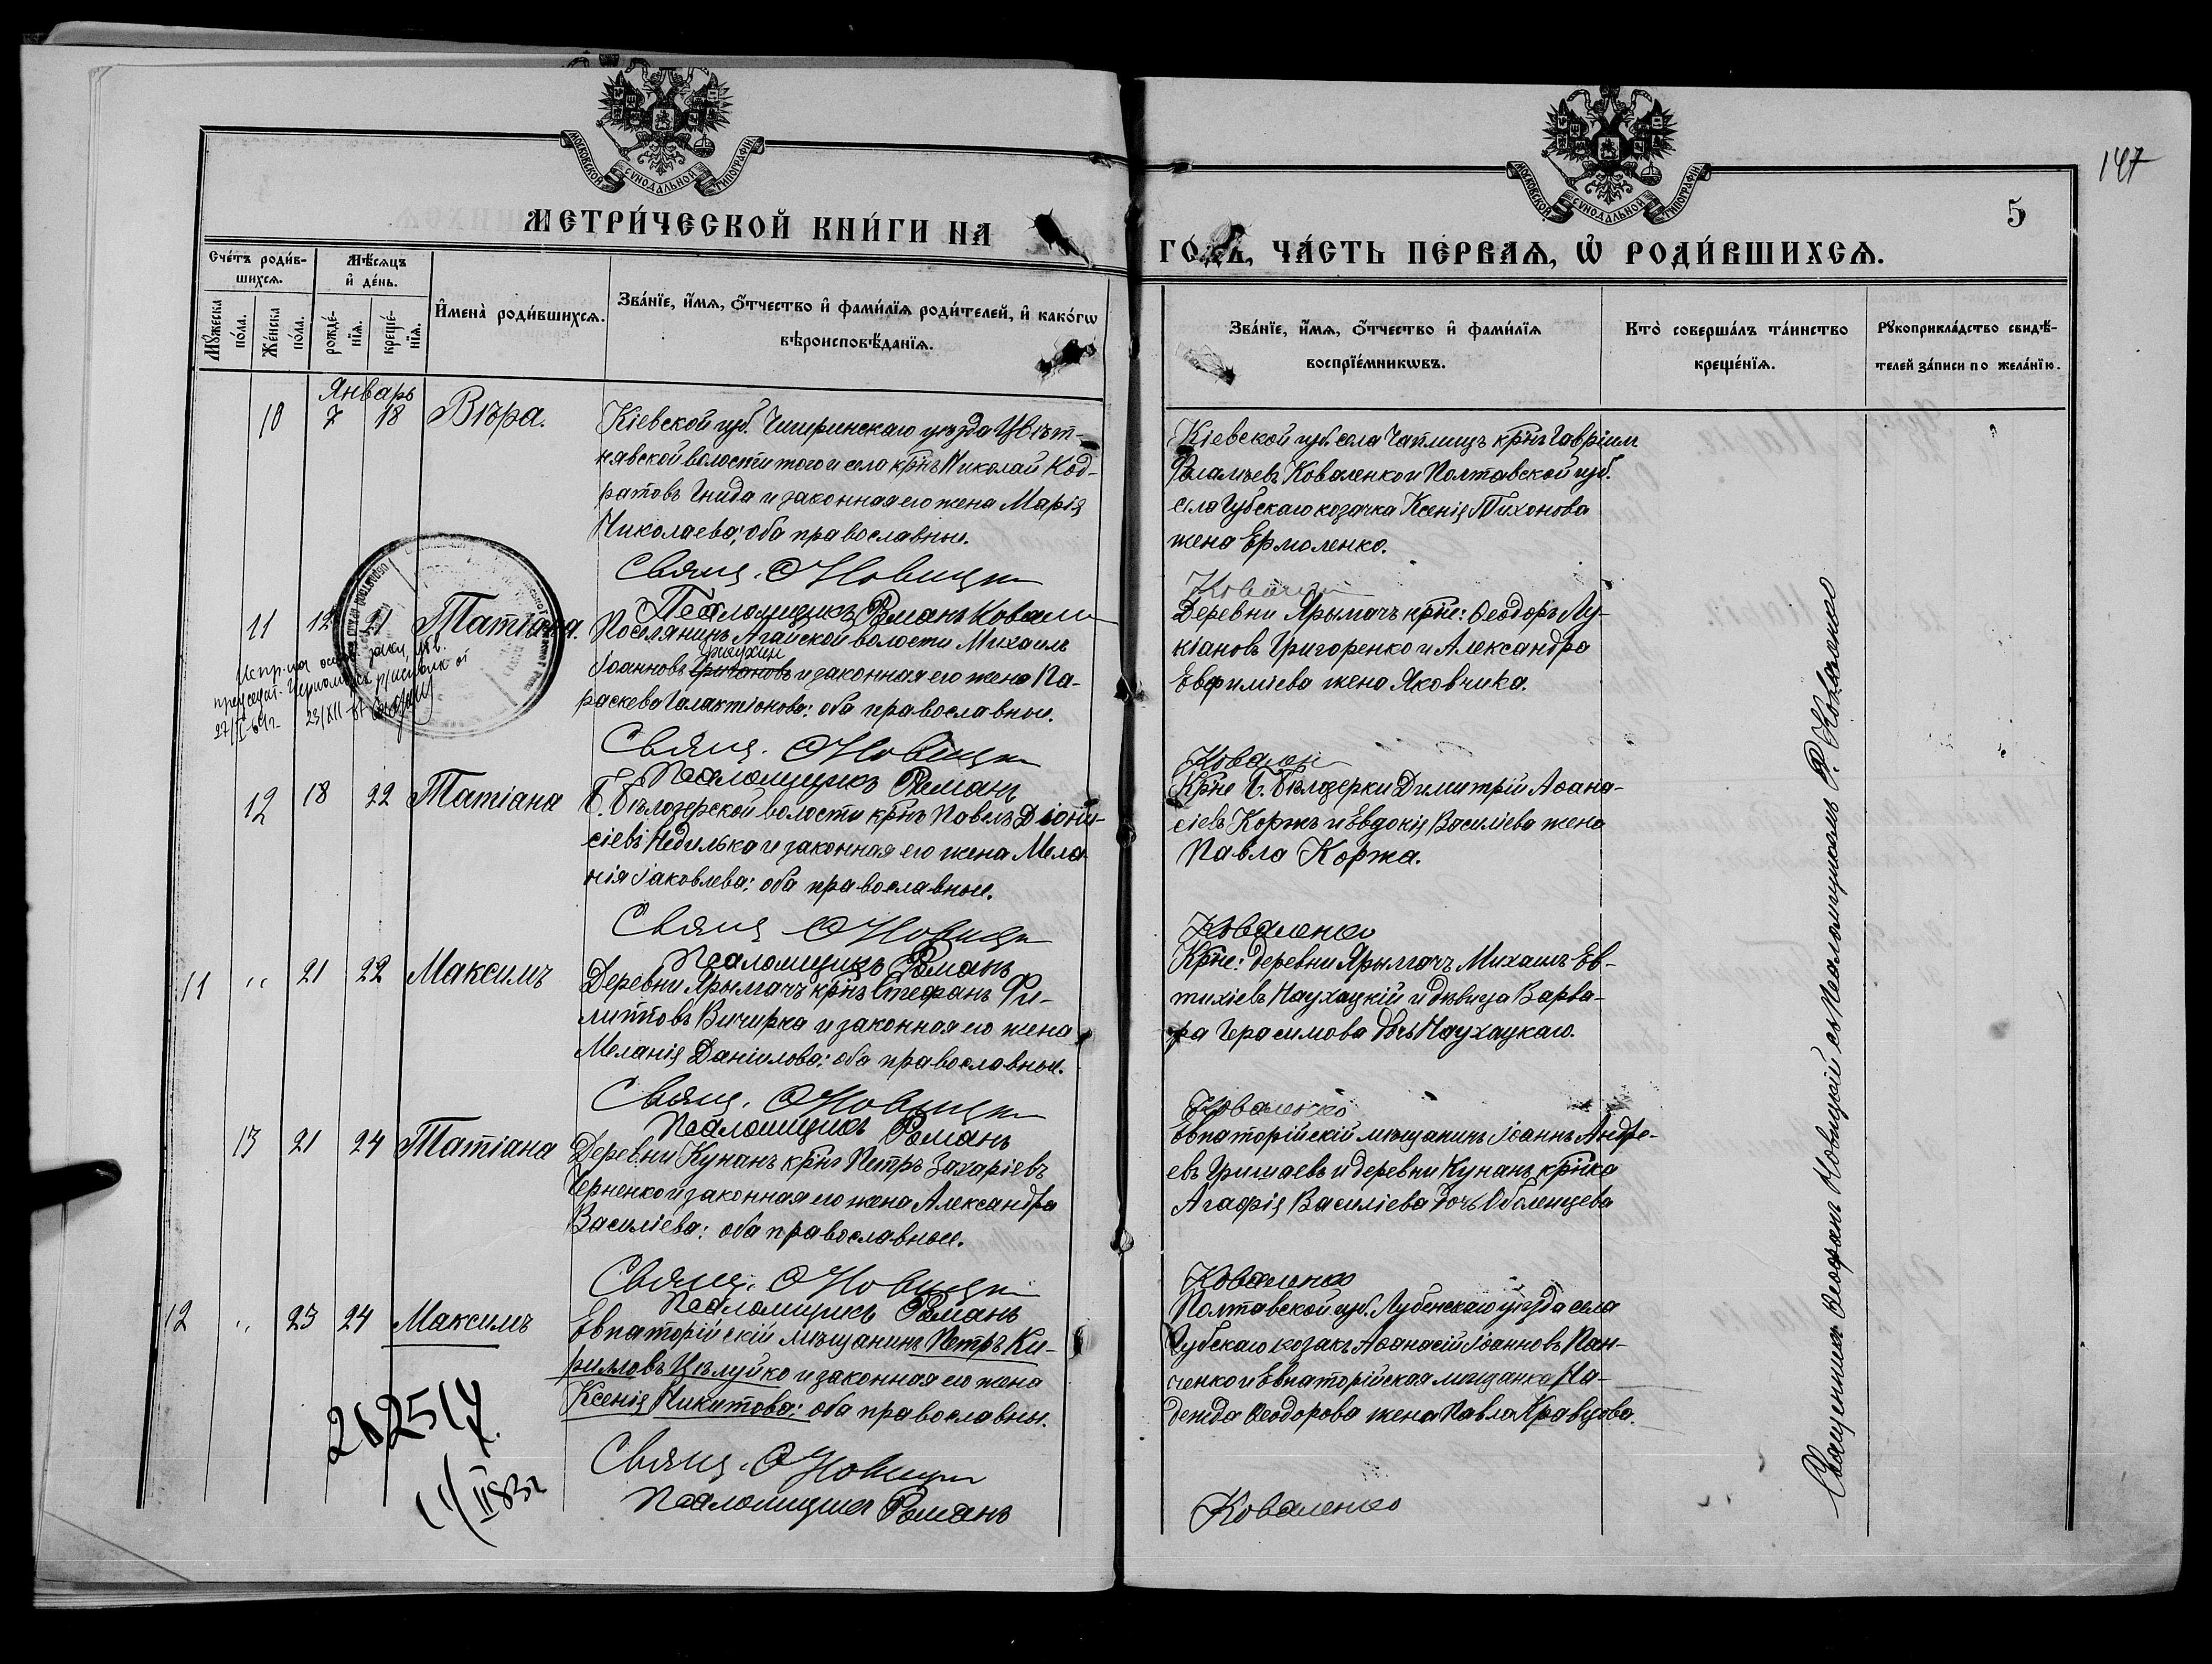 147
5
МОСКОВСКОЙ СѴНОДАЛЬНОЙ ТИПОГРАФІИ
МОСКОВСКОЙ СѴНОДАЛЬНОЙ ТИПОГРАФІИ
МЕТРИ́ЧЕСКОЙ КНИ́ГИ НА
ГО́ДЪ, ЧА́СТЬ ПЕ́РВАѦ, Ѡ҆ РОДИ́ВШИХСѦ.
Сче́тъ роди́в-
шихсѧ.
Мꙋ́жеска
по́ла.
Же́нска
по́ла.
Мѣ́сѧцъ
и҆ де́нь.
рожде́-
нїѧ.
креще́-
нїѧ.
И҆мена̀ роди́вшихсѧ.
Зва́нїе, и҆́мѧ, ѻ҆́тчество и҆ фами́лїѧ роди́телей, и҆ како́гѡ
вѣроисповѣ́данїѧ.
Зва́нїе, и҆́мѧ, ѻ҆́тчество и҆ фами́лїѧ
воспрїе́мникѡвъ.
Кто̀ соверша́лъ та́инство
креще́нїѧ.
Рꙋкоприкла́дство свидѣ́-
телей за́писи по жела́нїю.
Январь
10 7 18 Вѣра.
Кіевской губ. Чигиринскаго уѣзда Цвѣт-
нявской волости того и села крнъ Николай Код-
ратовъ Гнида и законная его жена Марія
Николаева; оба православные.
Свящ. Ѳ Новицкі
Псаломщикъ Романъ Ковален
Кіевской губ. села Чаплищъ крнъ Гавріил
Коваленко и Полтавской губ.
села Губскаго козачка Ксенія Тихонова
жена Ермоленко.
11 12 21 Татіана.
Поселянинъ Агайской волости Михаилъ
Іоанновъ и законная его жена Па-
раскева Галактіонова; оба православные.
Свящ. Ѳ Новицкі
Псаломщикъ Романъ
Деревни Ярылгачъ крне: Ѳеодоръ Лу-
кіановъ Григоренко и Александра
Евфиміева жена Яковчика.
Ковален
12 18 22 Татіана
Б. Бѣлозерской волости крнъ Павелъ Діони-
сіевъ Недилька и законная его жена Мела-
нія Іаковлева; оба православные.
Свящ. Ѳ Новицкі
Псаломщикъ Романъ
Крне Б. Бѣлозерки Димитрій Аѳана-
сіевъ Коржъ и Евдокія Василіева жена
Павла Коржа.
Коваленко
11 " 21 22 Максимъ
Деревни Ярылгачъ крнъ Стефанъ Фи-
липповъ Вичирка и законная его жена
Меланія Даніилова; оба православные.
Свящ. Ѳ Новицкі
Псаломщикъ Романъ
Крне: деревни Ярылгачъ Михаилъ Ев-
тихіевъ Наухацкій и дѣвица Варва-
ра Герасимова дочь Наухацкаго.
Коваленко
13 21 24 Татіана
Деревни Кунанъ крнъ Петръ Захаріевъ
Черненко и законная его жена Александра
Василіева; оба православные.
Свящ. Ѳ Новицкі
Псаломщикъ Романъ
Евпаторійскій мѣщанинъ Іоаннъ Андре-
евъ Гришаевъ и деревни Кунанъ крнка
Агафія Василіева дочь Оболенцева
Коваленко
12 " 23 24 Максимъ
Евпаторійскій мѣщанинъ Петръ Ки-
рилловъ Цѣлуйко и законная его жена
Ксенія Никитова; оба православны.
Свящ. Ѳ Новицкі
Псаломщикъ Романъ
Полтавской губ. Лубенскаго уѣзда села
Губскаго козакъ Аѳанасій Іоанновъ Пан-
ченко и Евпаторійская мѣщанка На-
дежда Ѳеодорова жена Павла Кравцова.
Коваленко
Священникъ Ѳеофанъ Новицкій съ Псаломщикомъ Р. Коваленко